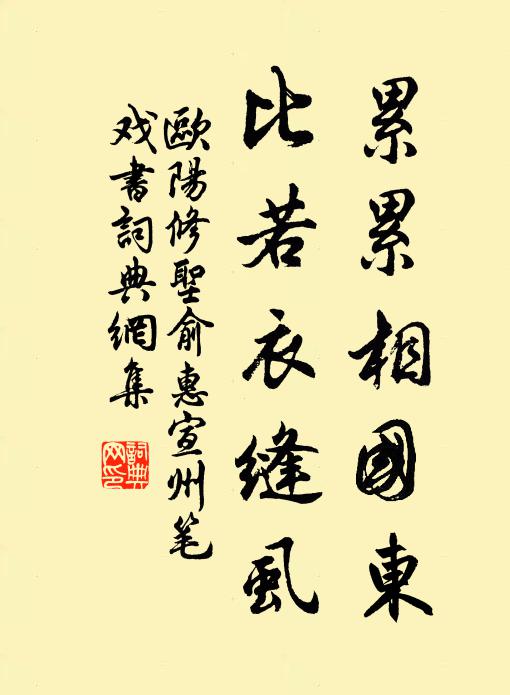 累累相國東
比若衣縫虱
歐陽修聖俞惠宣州笔
戏書詞典網集
詞典
网印